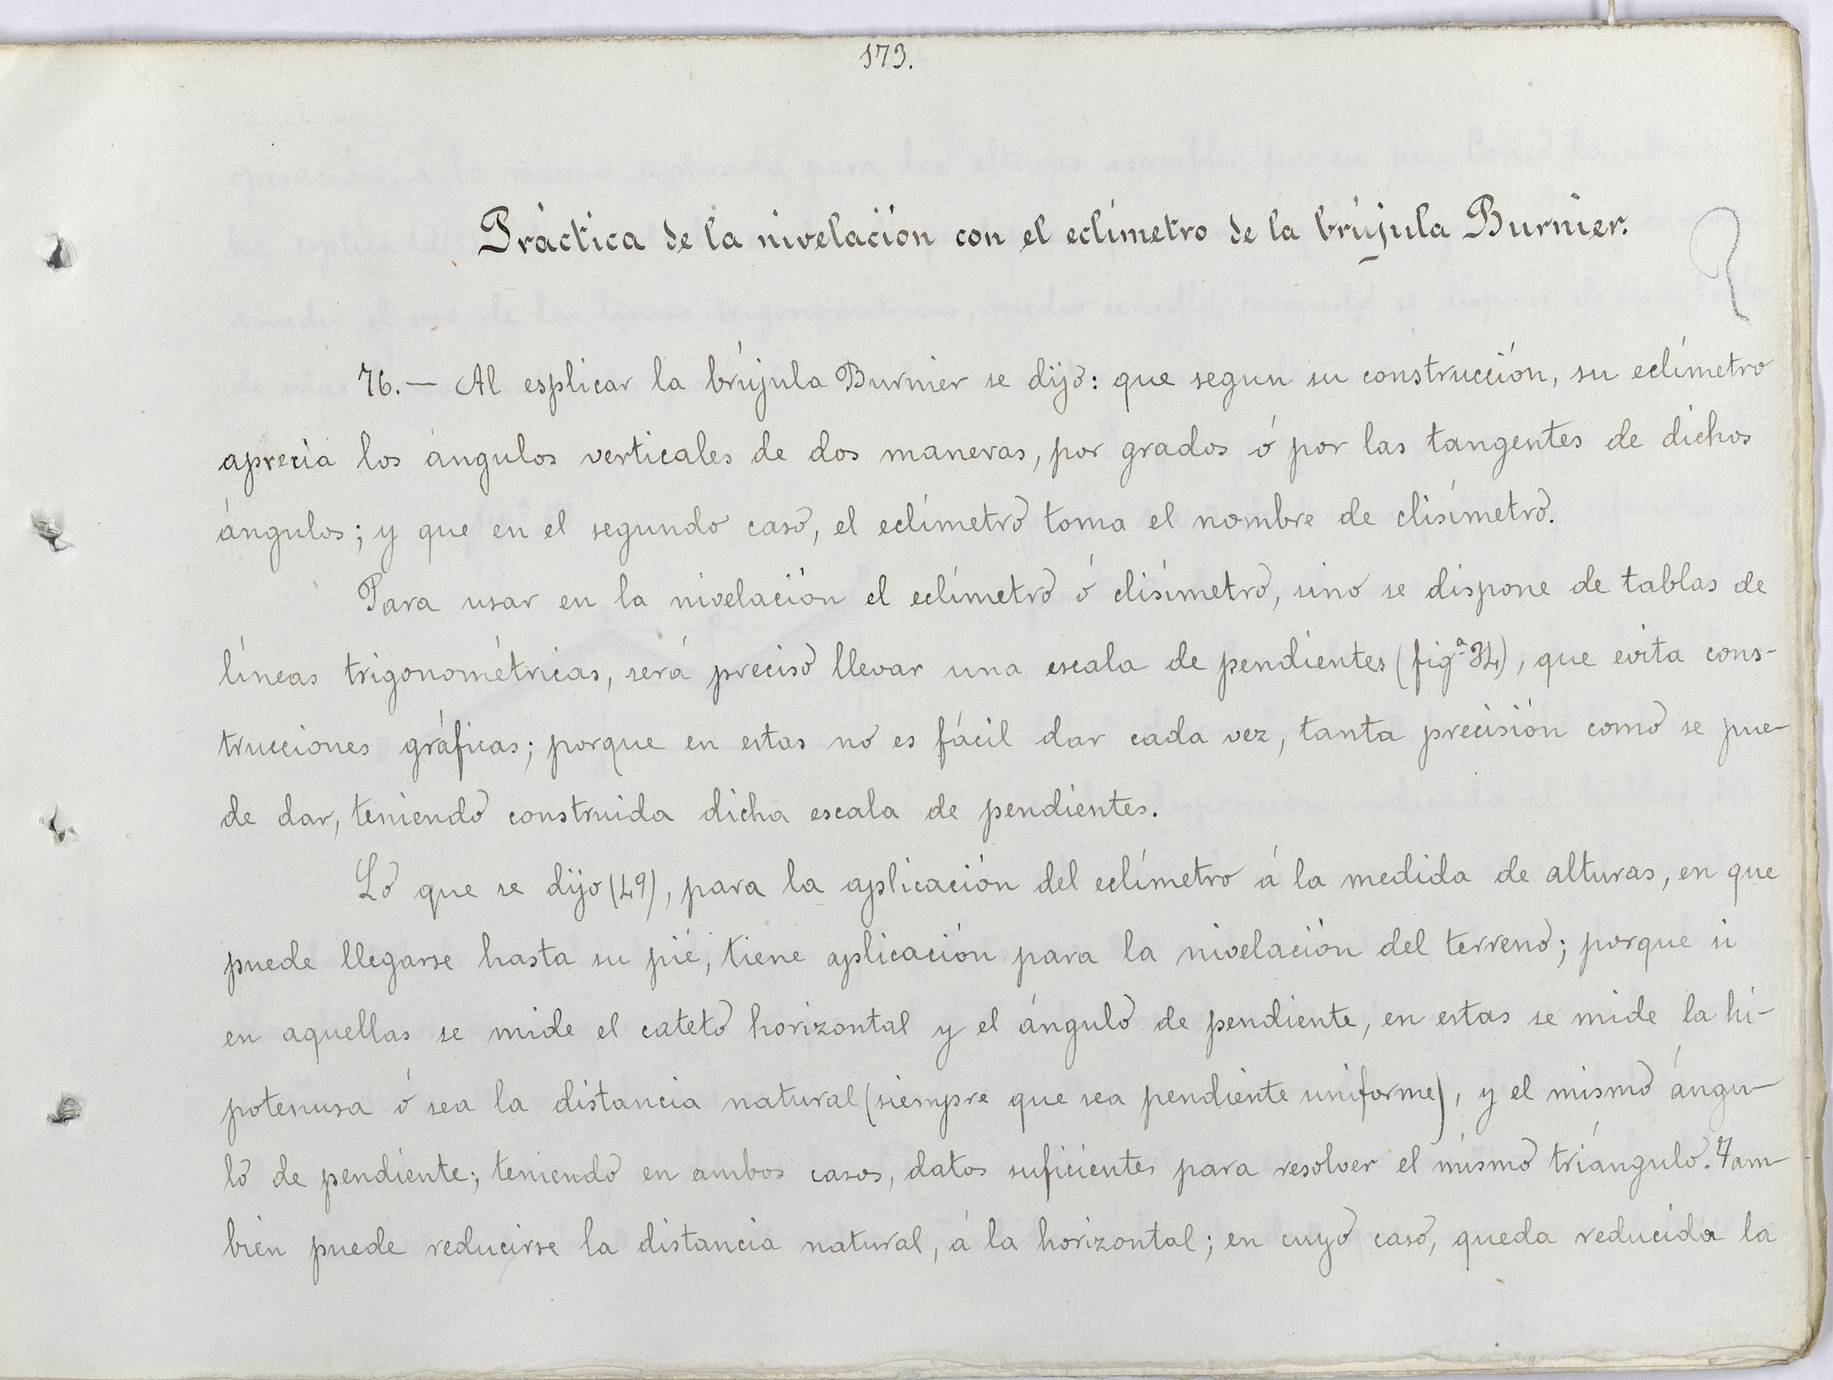 173.
Práctica de la nivelación con el eclímetro de la brújula Burnier.
76.— Al esplicar la brújula Burnier se dijo: que segun su construcción, su eclímetro
aprecia los ángulos verticales de dos maneras, por grados ó por las tangentes de dichos
ángulos; y que en el segundo caso, el eclímetro toma el nombre de clisímetro.
Para usar en la nivelación el eclímetro ó clisímetro, sino se dispone de tablas de
líneas trigonométricas, será preciso llevar una escala de pendientes (figª 34), que evita cons-
trucciones gráficas; porque en estas no es fácil dar cada vez, tanta precisión como se pue-
de dar, teniendo construida dicha escala de pendientes.
Lo que se dijo (49), para la aplicación del eclímetro á la medida de alturas, en que
puede llegarse hasta su pié, tiene aplicación para la nivelación del terreno; porque si
en aquellas se mide el cateto horizontal y el ángulo de pendiente, en estas se mide la hi-
potenusa ó sea la distancia natural (siempre que sea pendiente uniforme), y el mismo ángu-
lo de pendiente; teniendo en ambos casos, datos suficientes para resolver el mismo triángulo. Tam-
bien puede reducirse la distancia natural, á la horizontal; en cuyo caso, queda reducida la